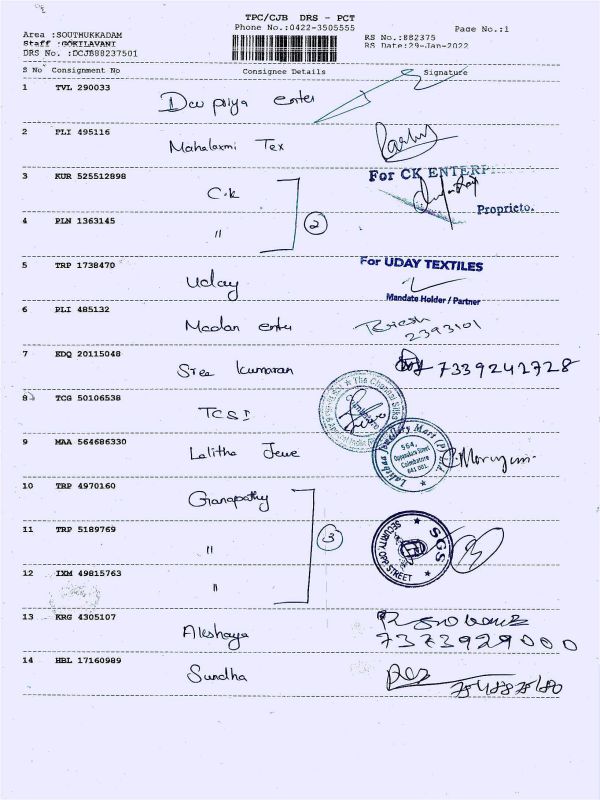 TPC/CJB DRS - PCT
Phone No.:0422-3505555
Page No.:1
Area :SOUTHUKKADAM
Staff :GOKILAVANI
DRS No. :DCJB88237501
RS No.:882375
RS Date:29-Jan-2022
S No Consignment No Consignee Details Signature
1 TVL 290033 Devpriya enter
2 PLI 495116 Mahalaxmi Tex
3 KUR 525512898 C.k
For CK ENTERP
Proprieto.
4 PLN 1363145 " 2
5 TRP 1738470 Uday
For UDAY TEXTILES
Mandate Holder / Partner
6 PLI 485132 Madan enter
2393101
7 EDQ 20115048 Sree kumaran 7339241728
8 TCG 50106538 TCSI
The Chennai Silks
9 MAA 564686330 Lalitha Jewe
Lalithaa Jewellery Mart (P) Ltd.
564,
Oppanakara Street
Coimbatore
641 001.
10 TRP 4970160 Ganapathy
11 TRP 5189769 " 3
SGS
SECURITY, OPP. STREET
12 IXM 49815763 "
13 KRG 4305107 Akshaya
7373929000
14 HBL 17160989 Sundha